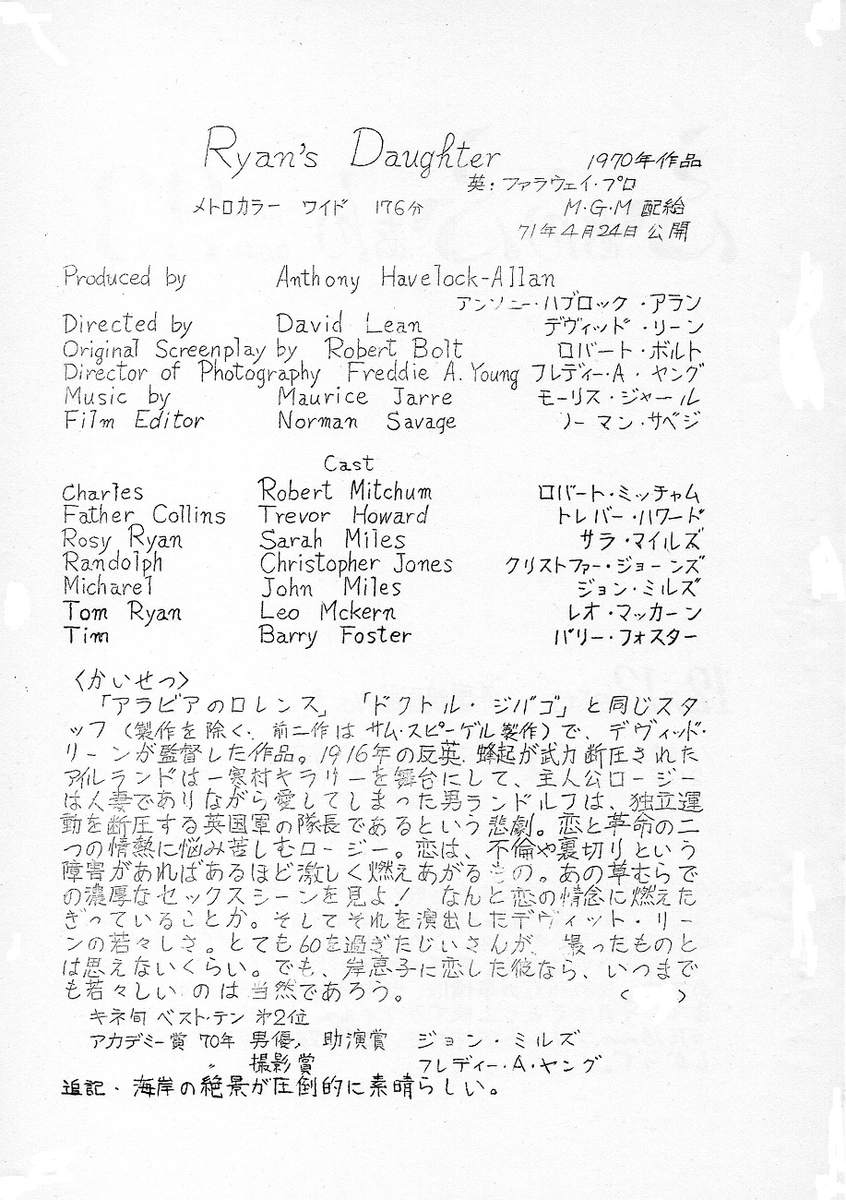 Ryan's Daughter 1970年作品
英：ファラウェイ・プロ
メトロカラー ワイド 176分 M・G・M 配給
71年4月24日 公開
Produced by Anthony Havelock-Allan
アンソニー・ハブロック・アラン
Directed by David Lean デヴィッド・リーン
Original Screenplay by Robert Bolt ロバート・ボルト
Director of Photography Freddie A. Young フレディー・A・ヤング
Music by Maurice Jarre モーリス・ジャール
Film Editor Norman Savage ノーマン・サベジ
Cast
Charles Robert Mitchum ロバート・ミッチャム
Father Collins Trevor Howard トレバー・ハワード
Rosy Ryan Sarah Miles サラ・マイルズ
Randolph Christopher Jones クリストファー・ジョーンズ
Micharel John Miles ジョン・ミルズ
Tom Ryan Leo Mckern レオ・マッカーン
Tim Barry Foster バリー・フォスター
〈かいせつ〉
「アラビアのロレンス」「ドクトル・ジバゴ」と同じスタ
ッフ（製作を除く．前二作は サム・スピーゲル製作）で、デヴィッド・
リーンが監督した作品。1916年の反英．蜂起が武力断圧された
アイルランドは一寒村キラリーを舞台にして、主人公ロージー
は人妻でありながら愛してしまった男ランドルフは、独立運
動を断圧する英国軍の隊長であるという悲劇。恋と革命の二
つの情熱に悩み苦しむロージー。恋は、不倫や裏切りという
障害があればあるほど激しく燃えあがるもの。あの草むらで
の濃厚なセックスシーンを見よ！ なんと恋の情念に燃えた
ぎっていることか。そしてそれを演出したデヴィット・リー
ンの若々しさ。とても60を過ぎたじいさんが、撮ったものと
は思えないくらい。でも、岸恵子に恋した彼なら、いつまで
も若々しいのは当然であろう。 〈 〉
キネ旬 ベスト・テン 第2位
アカデミー賞 70年 男優，助演賞 ジョン・ミルズ
〃 撮影賞 フレディー・A・ヤング
追記・海岸の絶景が圧倒的に素晴らしい。